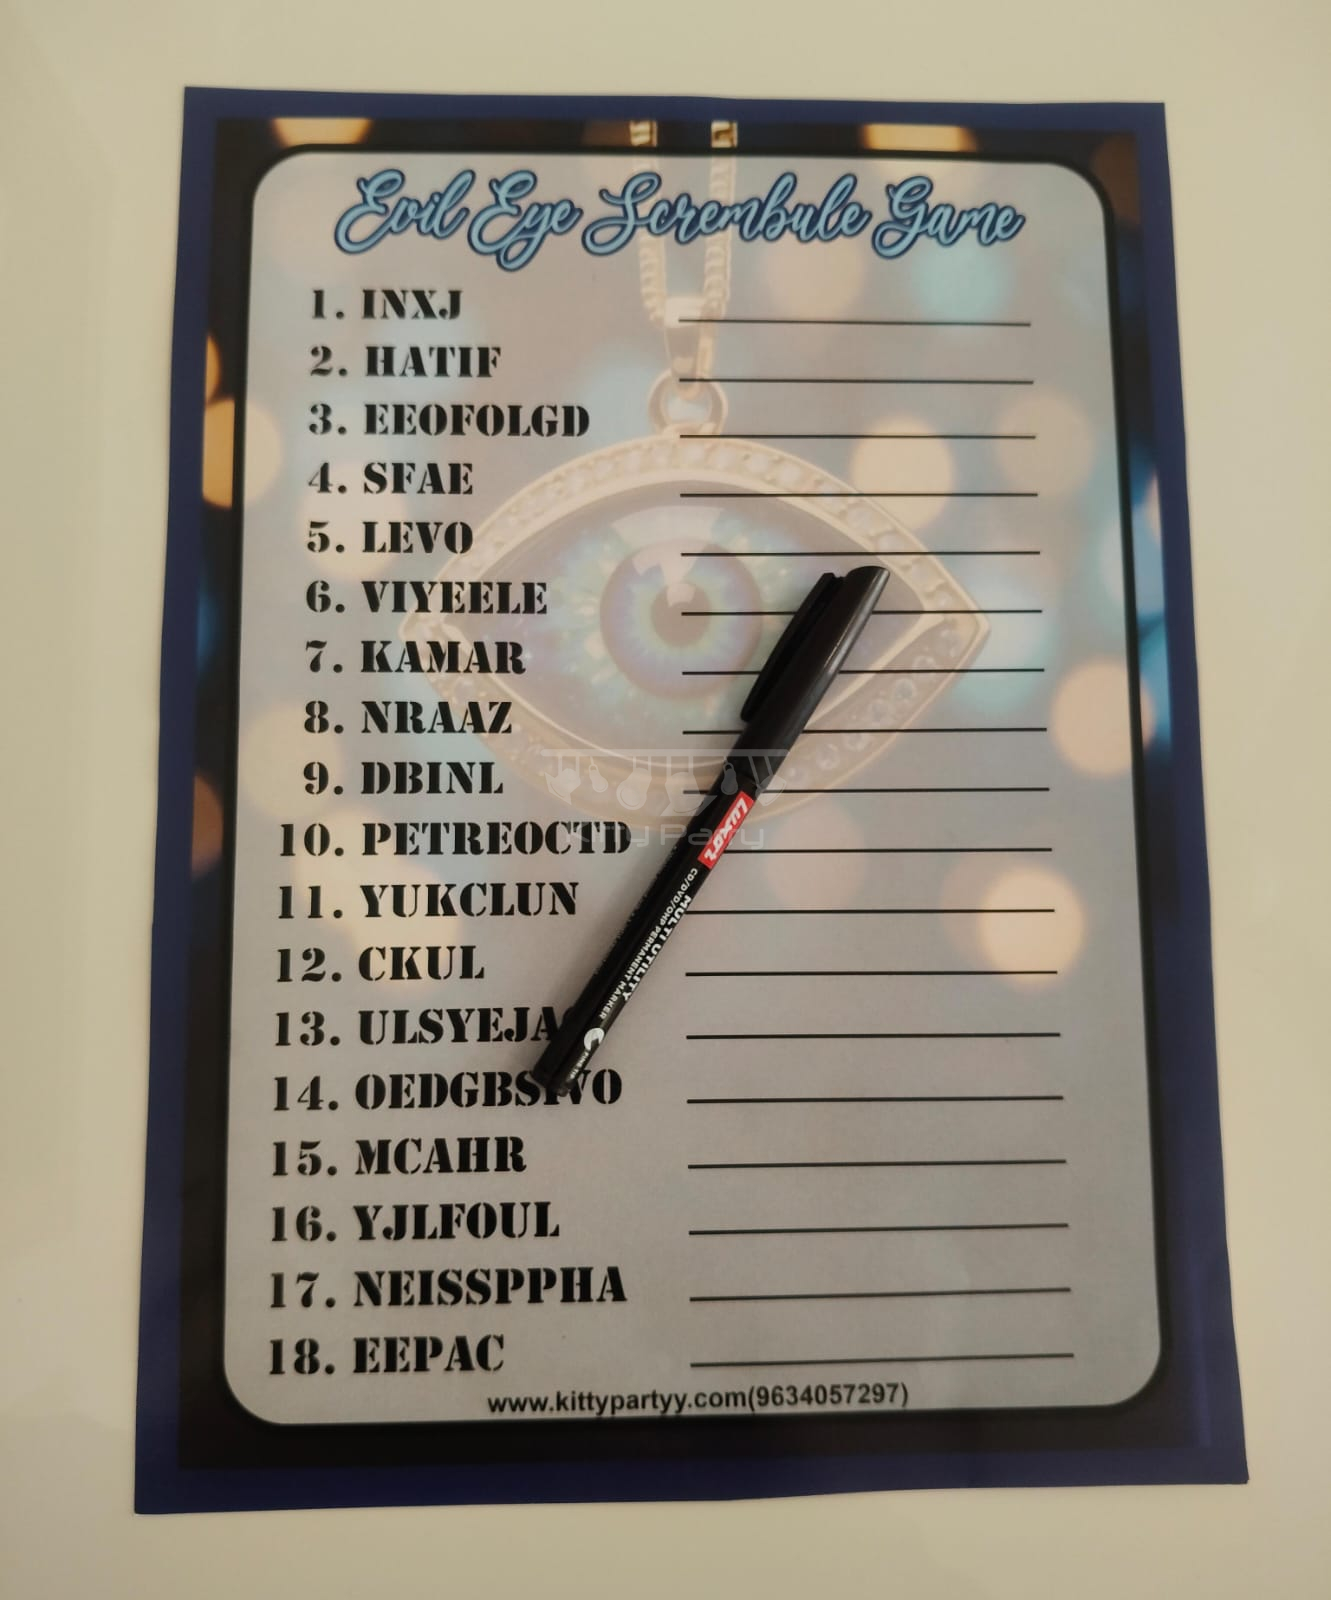 Evil Eye Scrembule Game
1. INXJ
2. HATIF
3. EEOFOLGD
4. SFAE
5. LEVO
6. VIYEELE
7. KAMAR
8. NRAAZ
9. DBINL
10. PETREOCTD
11. YUKCLUN
12. CKUL
13.
14.
15. MCAHR
16. YJLFOUL
17. NEISSPPHA
18. EEPAC
www.kittypartyy.com(9634057297)
Kitty Party
Luxor
MULTI UTILITY
CD/DVD/OHP PERMANENT MARKER
FINE TIP